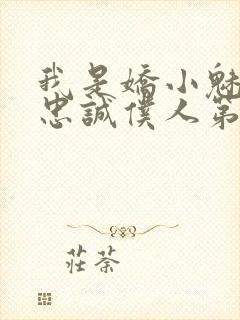 我是嬌小魅
忠誠僕人第
莊荼